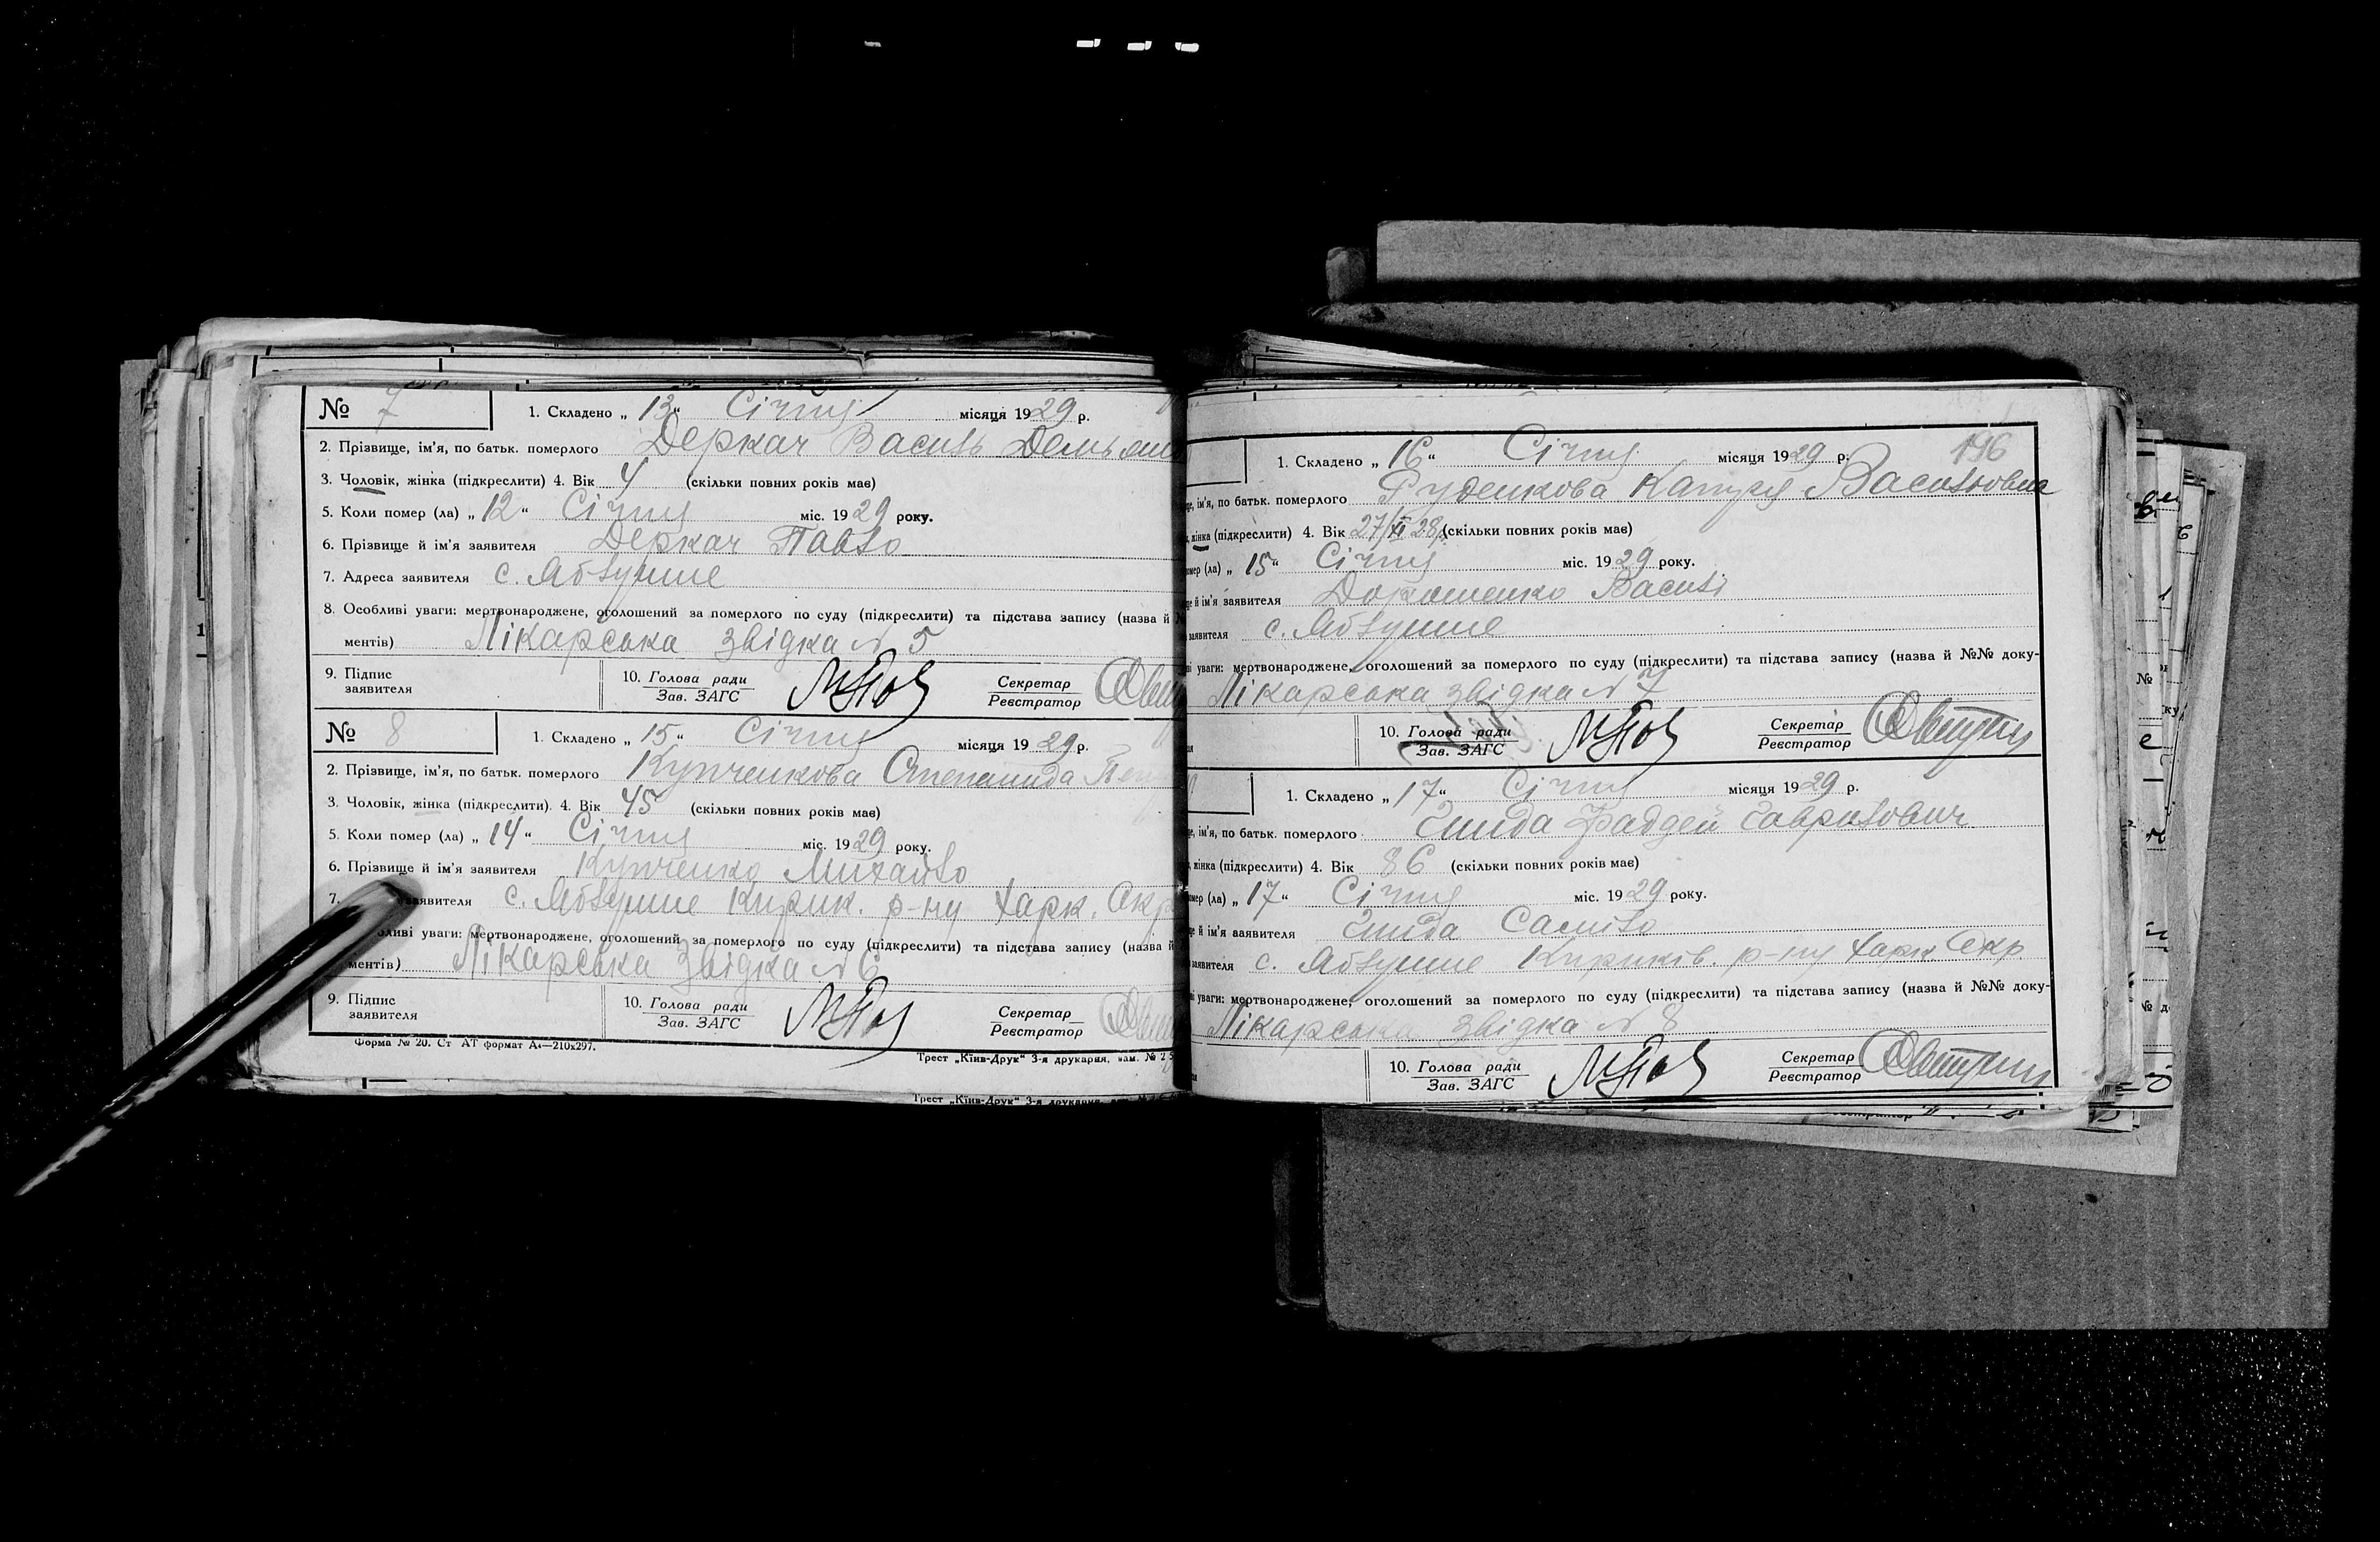 № 7 1. Складено „ 13 “ Січня місяця 1929 р.
2. Прізвище, ім'я, по батьк. померлого Деркач Василь Демьян
3. Чоловік, жінка (підкреслити) 4. Вік 4 (скільки повних років має)
5. Коли помер (ла) „ 12 “ Січня міс. 1929 року.
6. Прізвище й ім'я заявителя Деркач Павло
7. Адреса заявителя с. Яблучне
8. Особливі уваги: мертвонароджене, оголошений за померлого по суду (підкреслити) та підстава запису (назва й
ментів) Лікарська звідка № 5
9. Підпис заявителя 10. Голова ради Зав. ЗАГС Секретар Реєстратор
№ 8 1. Складено „ 15 “ Січня місяця 1929 р.
2. Прізвище, ім'я, по батьк. померлого Купченкова Степанида
3. Чоловік, жінка (підкреслити) 4. Вік 45 (скільки повних років має)
5. Коли помер (ла) „ 14 “ Січня міс. 1929 року.
6. Прізвище й ім'я заявителя Купченко Михайло
7. заявителя с. Яблучне Кирик. р-ну Харк. Окр
уваги: мертвонароджене, оголошений за померлого по суду (підкреслити) та підстава запису (назва й
ментів) Лікарська Звідка № 6
9. Підпис заявителя 10. Голова ради Зав. ЗАГС Секретар Реєстратор
Форма № 20. Ст АТ формат А4—210x297. Трест „Київ-Друк“ 3-я друкарня, зам. №
Трест „Київ-Друк“ 3-я друкарня
196
1. Складено „ 16 “ Січня місяця 1929 р.
ім'я, по батьк. померлого Руденкова Катуля Васильовна
жінка (підкреслити) 4. Вік 27/XI 28р. (скільки повних років має)
(ла) „ 15 “ Січня міс. 1929 року.
й ім'я заявителя Докашенко Василь
заявителя с. Яблучне
уваги: мертвонароджене, оголошений за померлого по суду (підкреслити) та підстава запису (назва й №№ доку-
Лікарська звідка № 7
10. Голова ради Зав. ЗАГС Секретар Реєстратор
1. Складено „ 17 “ Січня місяця 1929 р.
ім'я, по батьк. померлого Гнида Фаддей Гаврилович
жінка (підкреслити) 4. Вік 86 (скільки повних років має)
(ла) „ 17 “ Січня міс. 1929 року.
й ім'я заявителя Гнида Самійло
заявителя с. Яблучне Кириків. р-ну Харк Окр
уваги: мертвонароджене, оголошений за померлого по суду (підкреслити) та підстава запису (назва й №№ доку-
Лікарська звідка № 8
10. Голова ради Зав. ЗАГС Секретар Реєстратор